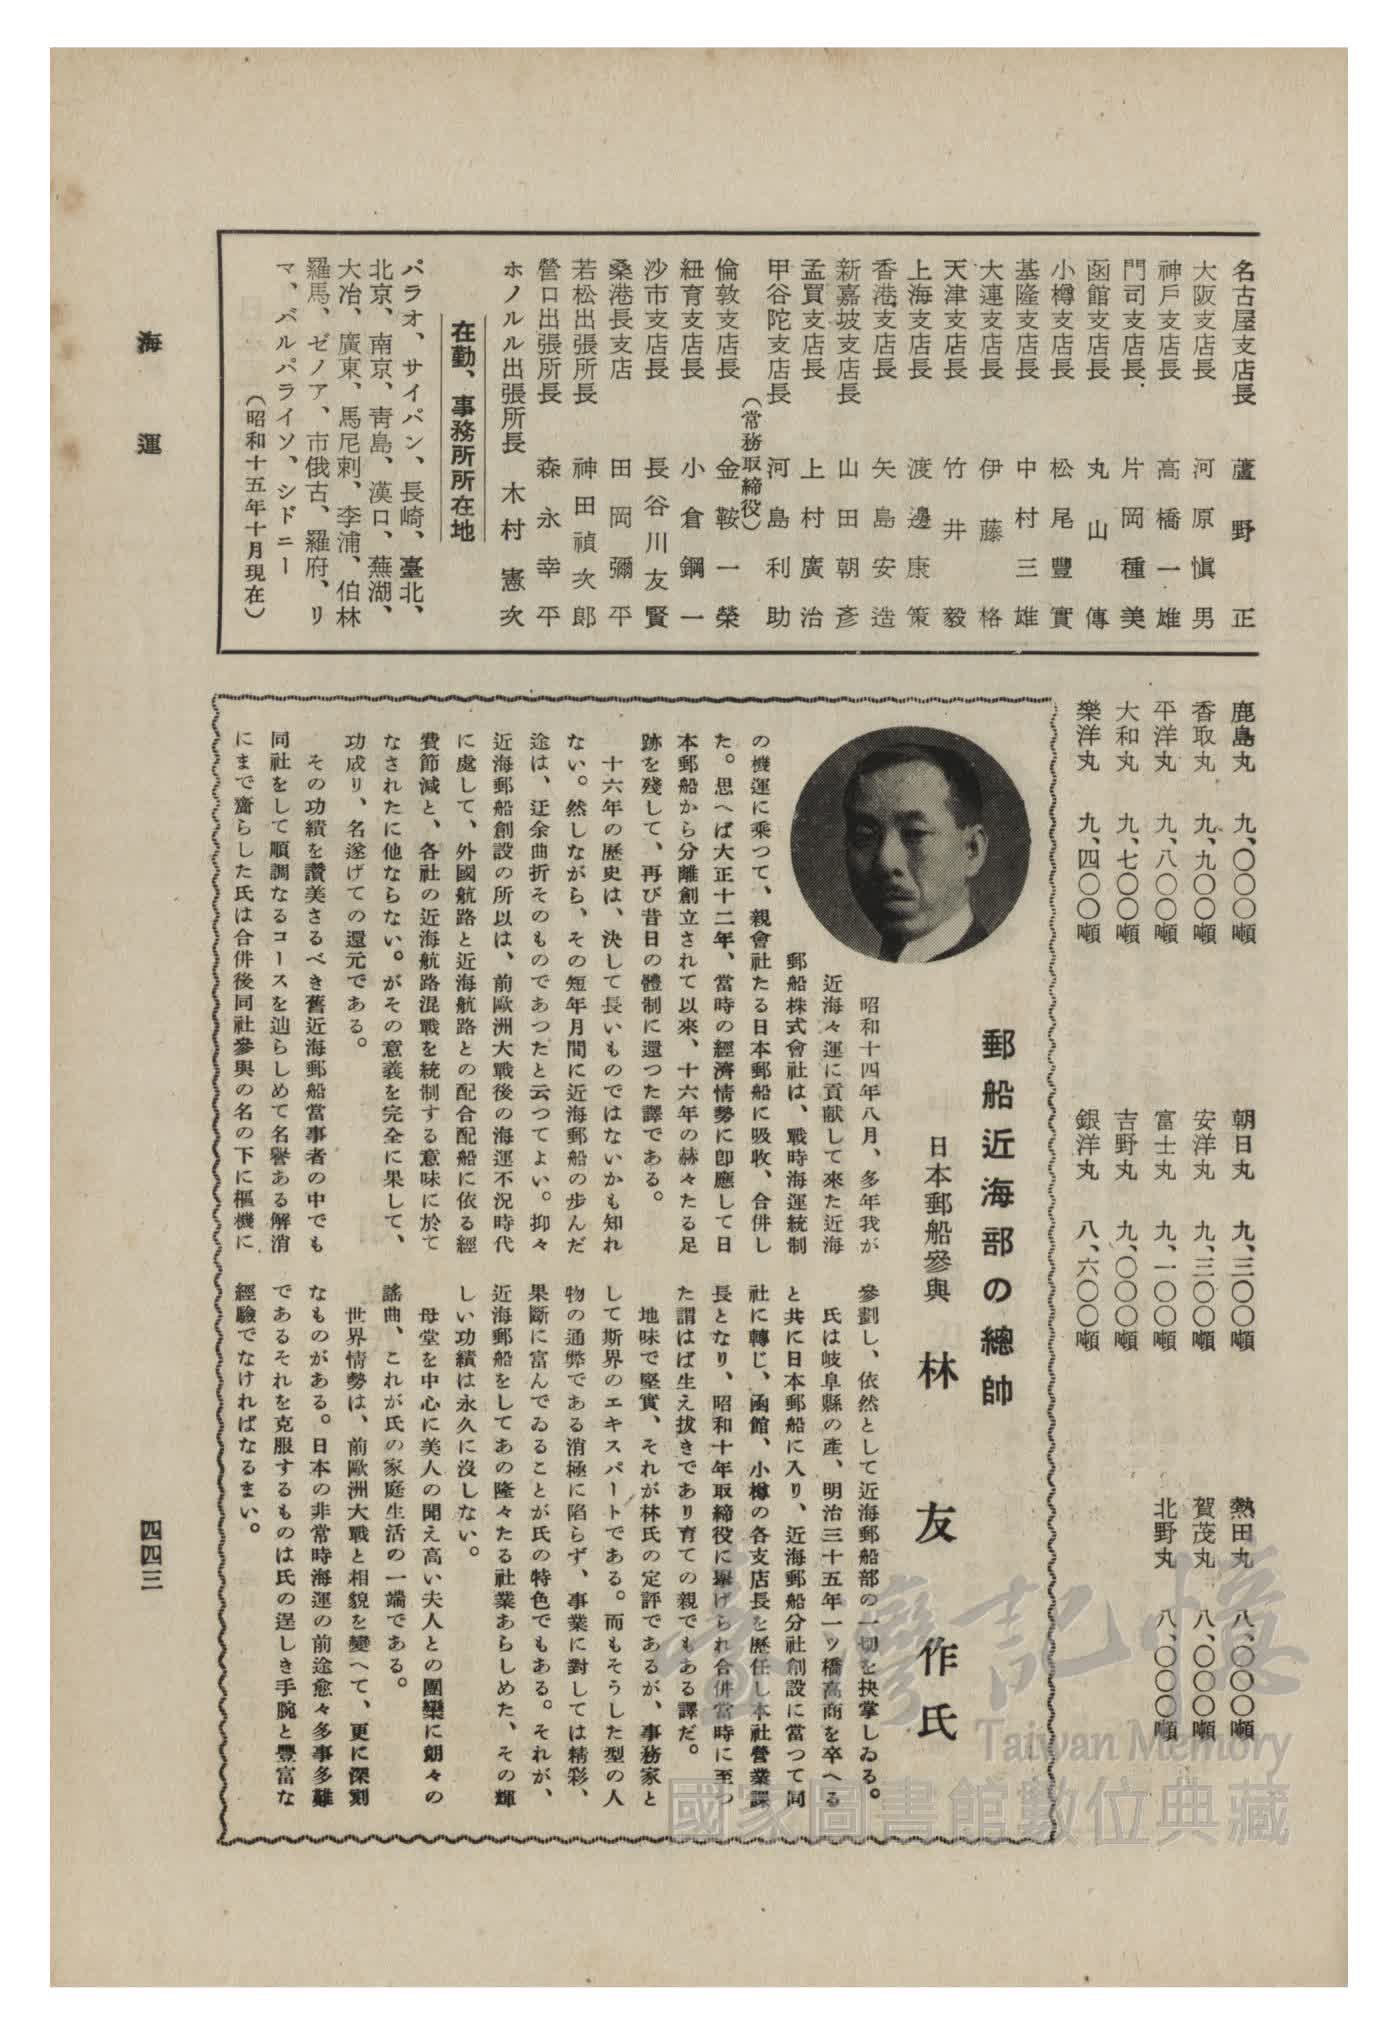 名古屋支店長 蘆野正
大阪支店長 河原愼男
神戶支店長 高橋一雄
門司支店長 片岡種美
函館支店長 丸山傳
小樽支店長 松尾豐實
基隆支店長 中村三雄
大連支店長 伊藤格
天津支店長 竹井毅
上海支店長 渡邊康策
香港支店長 矢島安造
新嘉坡支店長 山田朝彥
孟買支店長 上村廣治
甲谷陀支店長 河島利助
(常務取締役)
倫敦支店長 金鞍一榮
紐育支店長 小倉鋼一
沙市支店長 長谷川友賢
桑港長支店 田岡彌平
若松出張所長 神田禎次郎
營口出張所長 森永幸平
ホノルル出張所長 木村憲次
在勤、事務所所在地
パラオ、サイパン、長崎、臺北、
北京、南京、靑島、漢口、蕪湖、
大冶、廣東、馬尼剌、李浦、伯林
羅馬、ゼノア、市俄古、羅府、リ
マ、バルパライソ、シドニー
(昭和十五年十月現在)
鹿島丸 九、〇〇〇噸 朝日丸 九、三〇〇噸 熱田丸 八、〇〇〇噸
香取丸 九、九〇〇噸 安洋丸 九、三〇〇噸 賀茂丸 八、〇〇〇噸
平洋丸 九、八〇〇噸 富士丸 九、一〇〇噸 北野丸 八、〇〇〇噸
大和丸 九、七〇〇噸 吉野丸 九、〇〇〇噸
樂洋丸 九、四〇〇噸 銀洋丸 八、六〇〇噸
郵船近海部の總帥
日本郵船參與 林友作氏
昭和十四年八月、多年我が
近海々運に貢献して來た近海
郵船株式會社は、戰時海運統制
の機運に乘つて、親會社たる日本郵船に吸收、合併し
た。思へば大正十二年、當時の經濟情勢に卽應して日
本郵船から分離創立されて以來、十六年の赫々たる足
跡を殘して、再び昔日の體制に還つた譯である。
十六年の歷史は、決して長いものではないかも知れ
ない。然しながら、その短年月間に近海郵船の步んだ
途は、迂余曲折そのものであつたと云つてよい。抑々
近海郵船創設の所以は、前歐洲大戰後の海運不況時代
に處して、外國航路と近海航路との配合配船に依る經
費節減と、各社の近海航路混戰を統制する意味に於て
なされたに他ならない。がその意義を完全に果して、
功成り、名遂げての還元である。
その功績を讚美さるべき舊近海郵船當事者の中でも
同社をして順調なるコースを辿らしめて名譽ある解消
にまで齎らした氏は合併後同社參與の名の下に樞機に
參劃し、依然として近海郵船部の一切を抉掌しゐる。
氏は岐阜縣の產、明治三十五年一ッ橋高商を卒へる
と共に日本郵船に入り、近海郵船分社創設に當つて同
社に轉じ、函館、小樽の各支店長を歷任し本社營業課
長となり、昭和十年取締役に擧げられ合併當時に至つ
た謂はば生え拔きであり育ての親でもある譯だ。
地味で堅實、それが林氏の定評であるが、事務家と
して斯界のエキスパートである。而もそうした型の人
物の通弊である消極に陷らず、事業に對しては精彩、
果斷に富んでゐることが氏の特色でもある。それが、
近海郵船をしてあの隆々たる社業あらしめた、その輝
しい功績は永久に沒しない。
母堂を中心に美人の聞え高い夫人との團欒に朗々の
謠曲、これが氏の家庭生活の一端である。
世界情勢は、前歐洲大戰と相貌を變へて、更に深刻
なものがある。日本の非常時海運の前途愈々多事多難
であるそれを克服するものは氏の逞しき手腕と豐富な
經驗でなければなるまい。
海運
四四三
臺灣記憶
Taiwan Memory
國家圖書館數位典藏